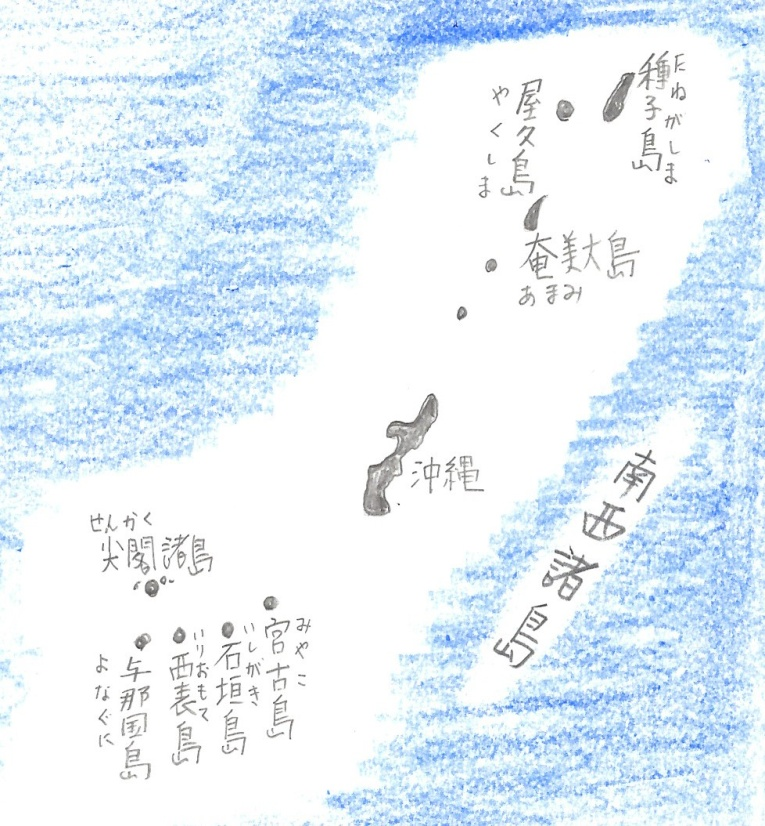 種子島
たねがしま
屋久島
やくしま
奄美大島
あまみ
沖縄
南西諸島
せんかく
尖閣諸島
宮古島
みやこ
石垣島
いしがき
西表島
いりおもて
与那国島
よなぐに